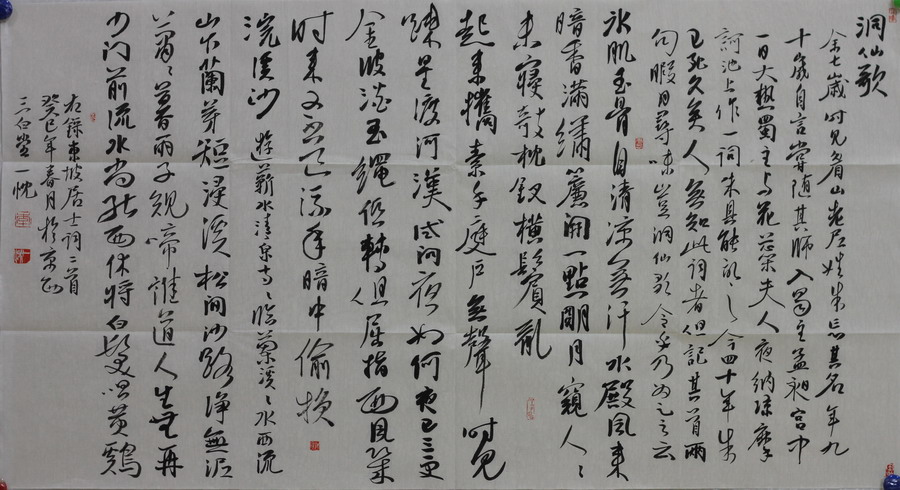 洞仙歌
余七歲時見眉山老尼姓朱忘其名年九
十歲自言嘗隨其師入蜀主孟昶宮中
一日大熱蜀主與花蕊夫人夜納涼摩
訶池上作一詞朱具能記之今四十年朱
已死久矣人無知此詞者但記其首兩
句暇日尋味豈洞仙歌令乎乃為足之云
冰肌玉骨自清涼無汗水殿風來
暗香滿繡簾開一點明月窺人人
未寢欹枕釵橫鬢亂
起來攜素手庭戶無聲時見
疎星渡河漢試問夜如何夜已三更
金波淡玉繩低轉但屈指西風幾
時來又不道流年暗中偷換
浣溪沙 遊蘄水清泉寺寺臨蘭溪溪水西流
山下蘭芽短浸溪松間沙路淨無泥
蕭蕭暮雨子規啼誰道人生無再
少門前流水尚能西休將白髮唱黃鷄
右錄東坡居士詞二首
癸巳年春月於京
三白堂一忱